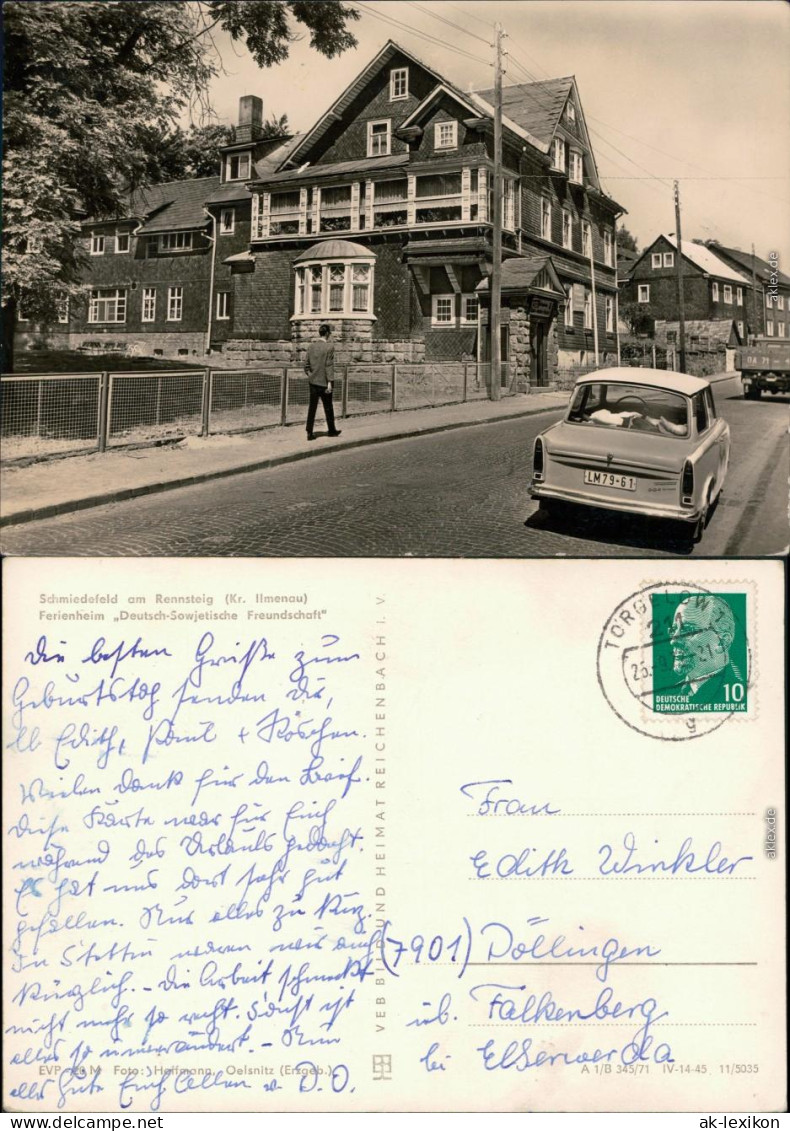 LM79-61
Schmiedefeld am Rennsteig (Kr. Ilmenau)
Ferienheim „Deutsch-Sowjetische Freundschaft"
Die besten Grüße zum
Geburtstag senden Dir,
lb Edith, Paul + Röschen.
Vielen Dank für den Brief.
Diese Karte war für Euch
während des Urlaubs gedacht.
Es hat uns dort sehr gut
gefallen. Nur alles zu kurz.
In Stettin waren wir auch
kürzlich. - Die Arbeit schmeckt
nicht mehr so recht. Sonst ist
alles so unverändert. - Nun
alles Gute Euch Allen v. D. O.
EVP M Foto: Hoffmann, Oelsnitz (Erzgeb.)
VEB BILD UND HEIMAT REICHENBACH I. V.
TORGELOW 1
211
DEUTSCHE
DEMOKRATISCHE REPUBLIK
10
g
Frau
Edith Winkler
(7901) Döllingen
üb. Falkenberg
bei Elsterwerda
A 1/B 345/71 IV-14-45 11/5035
aklex.de
aklex.de
www.ak-lexikon.de
ak-lexikon.com